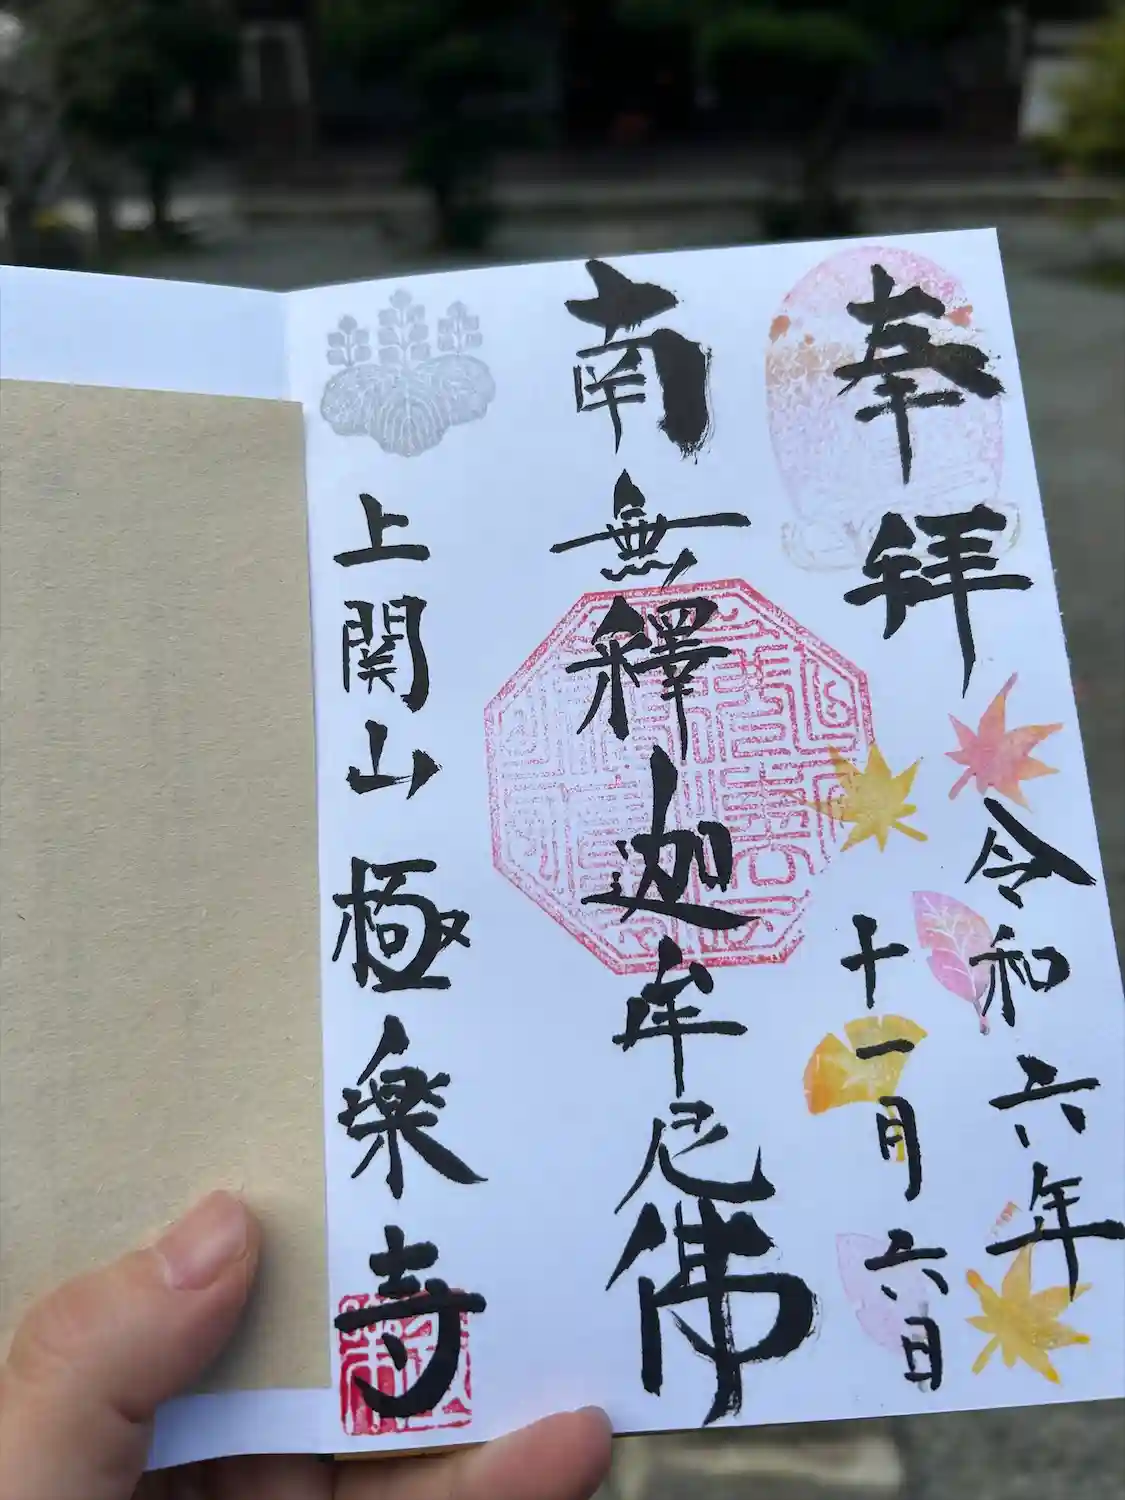 奉拝
令和六年
十一月六日
南無釋迦牟尼佛
上関山極楽寺